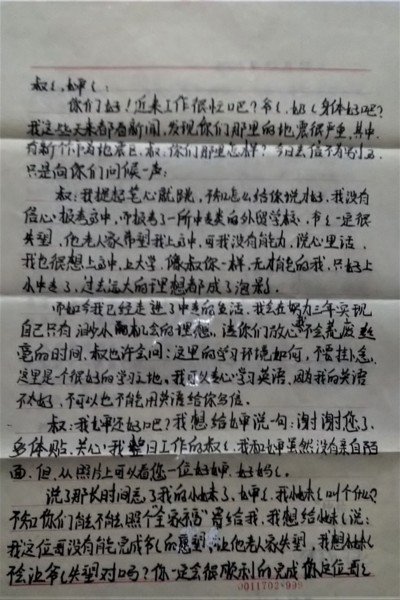 叔叔、婶婶:
你们好!近来工作很忙吧?爷爷、奶奶身体好吧?
我这些天来都看新闻,发现你们那里的地震很严重,其中
有新个小有地震已。叔,你们那里怎样?今日去信不为别的,
只是向你们问候一声。
叔:我提起笔心就跳,不知怎么给你说才好,我没有
信心报考高中,而报考了一所中专类的外留学校,爷爷一定很
失望,他老人家希望我上高中,可我没有能力,说心里话,
我也很想上高中,上大学,像叔你一样,无才能的我,只好上
小中专了,过去远大的理想都成了泡影。
而如今我已经走进了中专的生活,我会在努力三年实现
自己只有 机会的理想,请你们放心,我不会荒废
毫的时间,叔也许会问:这里的学习环境如何,不要挂念,
这里是个很好的学习之地,我可以专心学习英语,因为我的英语
不太好,可以也不能用英语给你写信。
叔:我婶还好吧?我想给婶说一句:谢谢您了,
多体贴、关心我整日工作的叔叔,我和婶虽然没有亲自陌
面,但,从照片上可以看您一位好婶、好妈妈。
说了那长时间忘了我的小妹了,婶婶,我小妹叫个什么?
不知你们能不能照个“全家福”寄给我,我想给小妹说:
我这位哥没有能完成爷爷的愿望,让他老人家失望,我想小妹
不会让爷爷失望对吗?你一定会很顺利的完成你这位哥哥
0011702·990